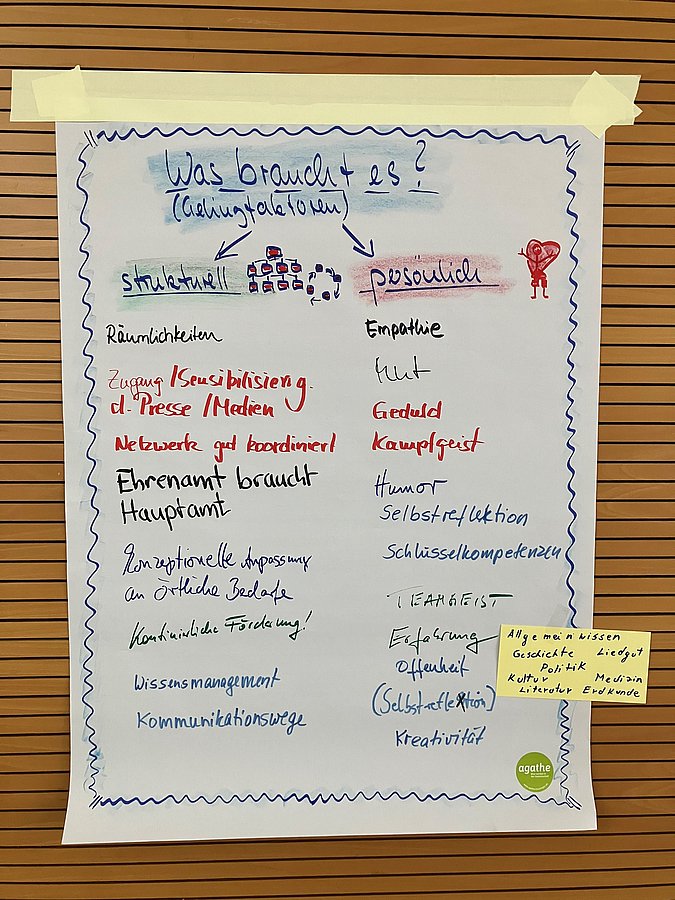 Was braucht es?
(Gelingfaktoren)
strukturell
Räumlichkeiten
Zugang/Sensibilisierung.
d. Presse/Medien
Netzwerk gut koordiniert
Ehrenamt braucht
Hauptamt
Konzeptionelle Anpassung
an örtliche Bedarfe
Kontinuierliche Förderung!
Wissensmanagement
Kommunikationswege
persönlich
Empathie
Mut
Geduld
Kampfgeist
Humor
Selbstreflektion
Schlüsselkompetenzen
TEAMGEIST
Erfahrung
Offenheit
(Selbstreflextion)
Kreativität
Allgemeinwissen
Geschichte Liedgut
Politik
Kultur Medizin
Literatur Erdkunde
agathe